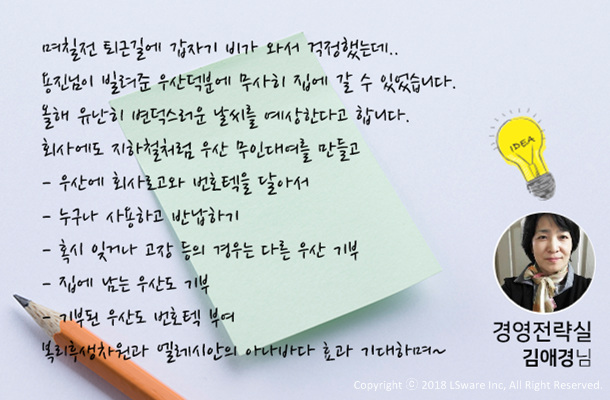 며칠전 퇴근길에 갑자기 비가 와서 걱정했는데..
용진님이 빌려준 우산덕분에 무사히 집에 갈 수 있었습니다.
올해 유난히 변덕스러운 날씨를 예상한다고 합니다.
회사에도 지하철처럼 우산 무인대여를 만들고
- 우산에 회사로고와 번호텍을 달아서
- 누구나 사용하고 반납하기
- 혹시 잊거나 고장 등의 경우는 다른 우산 기부
- 집에 남는 우산도 기부
- 기부된 우산도 번호텍 부여
복리후생차원과 엘레시안의 아나바다 효과 기대하며~
IDEA
경영전략실
김애경님
Copyright ⓒ 2018 LSware Inc, All Right Reserved.